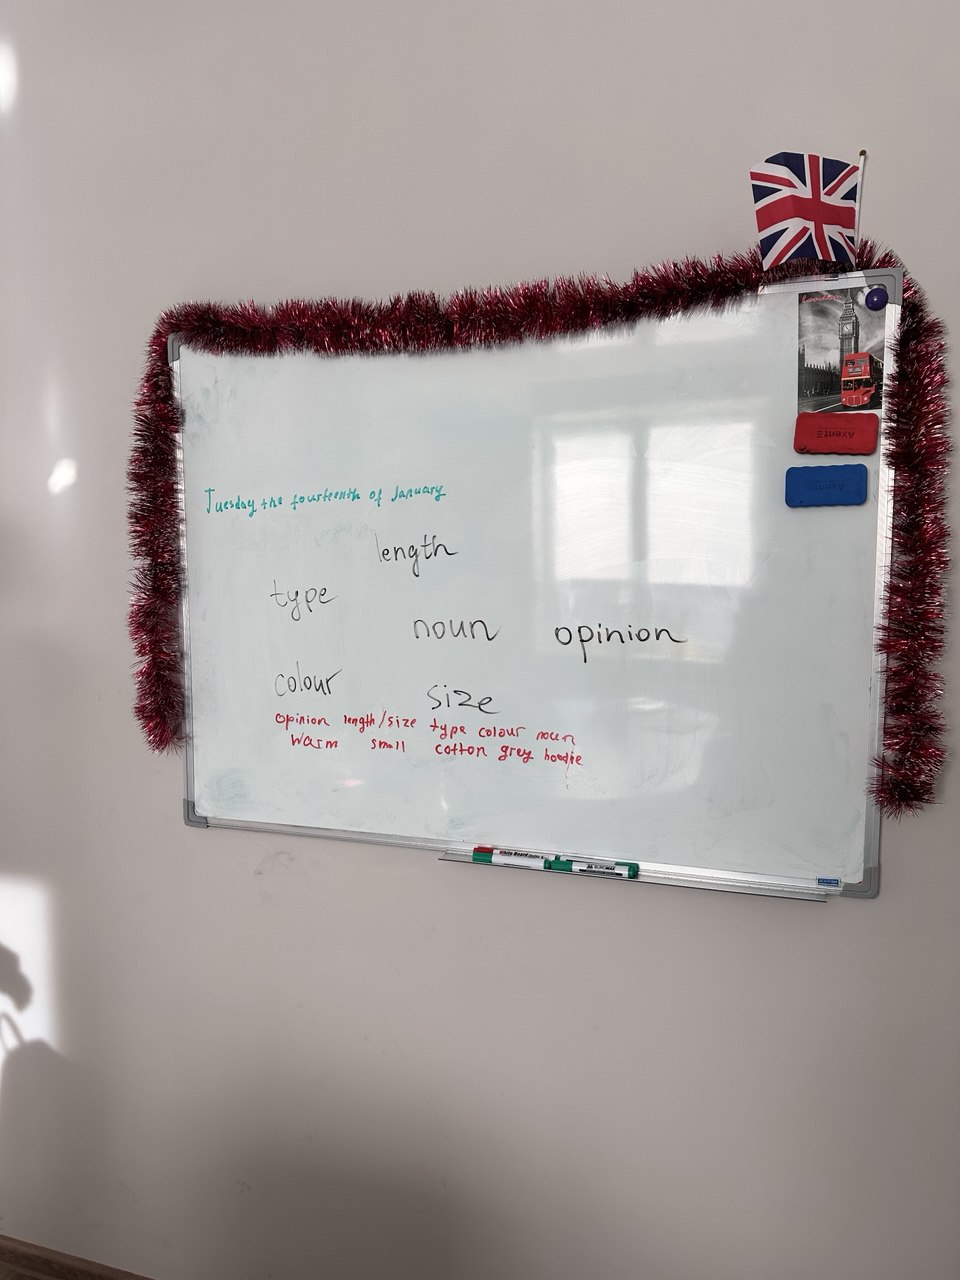 London
Axent
Axent
Tuesday the fourteenth of January
length
type
noun opinion
colour
size
opinion length/size type colour noun
warm small cotton grey hoodie
White Board